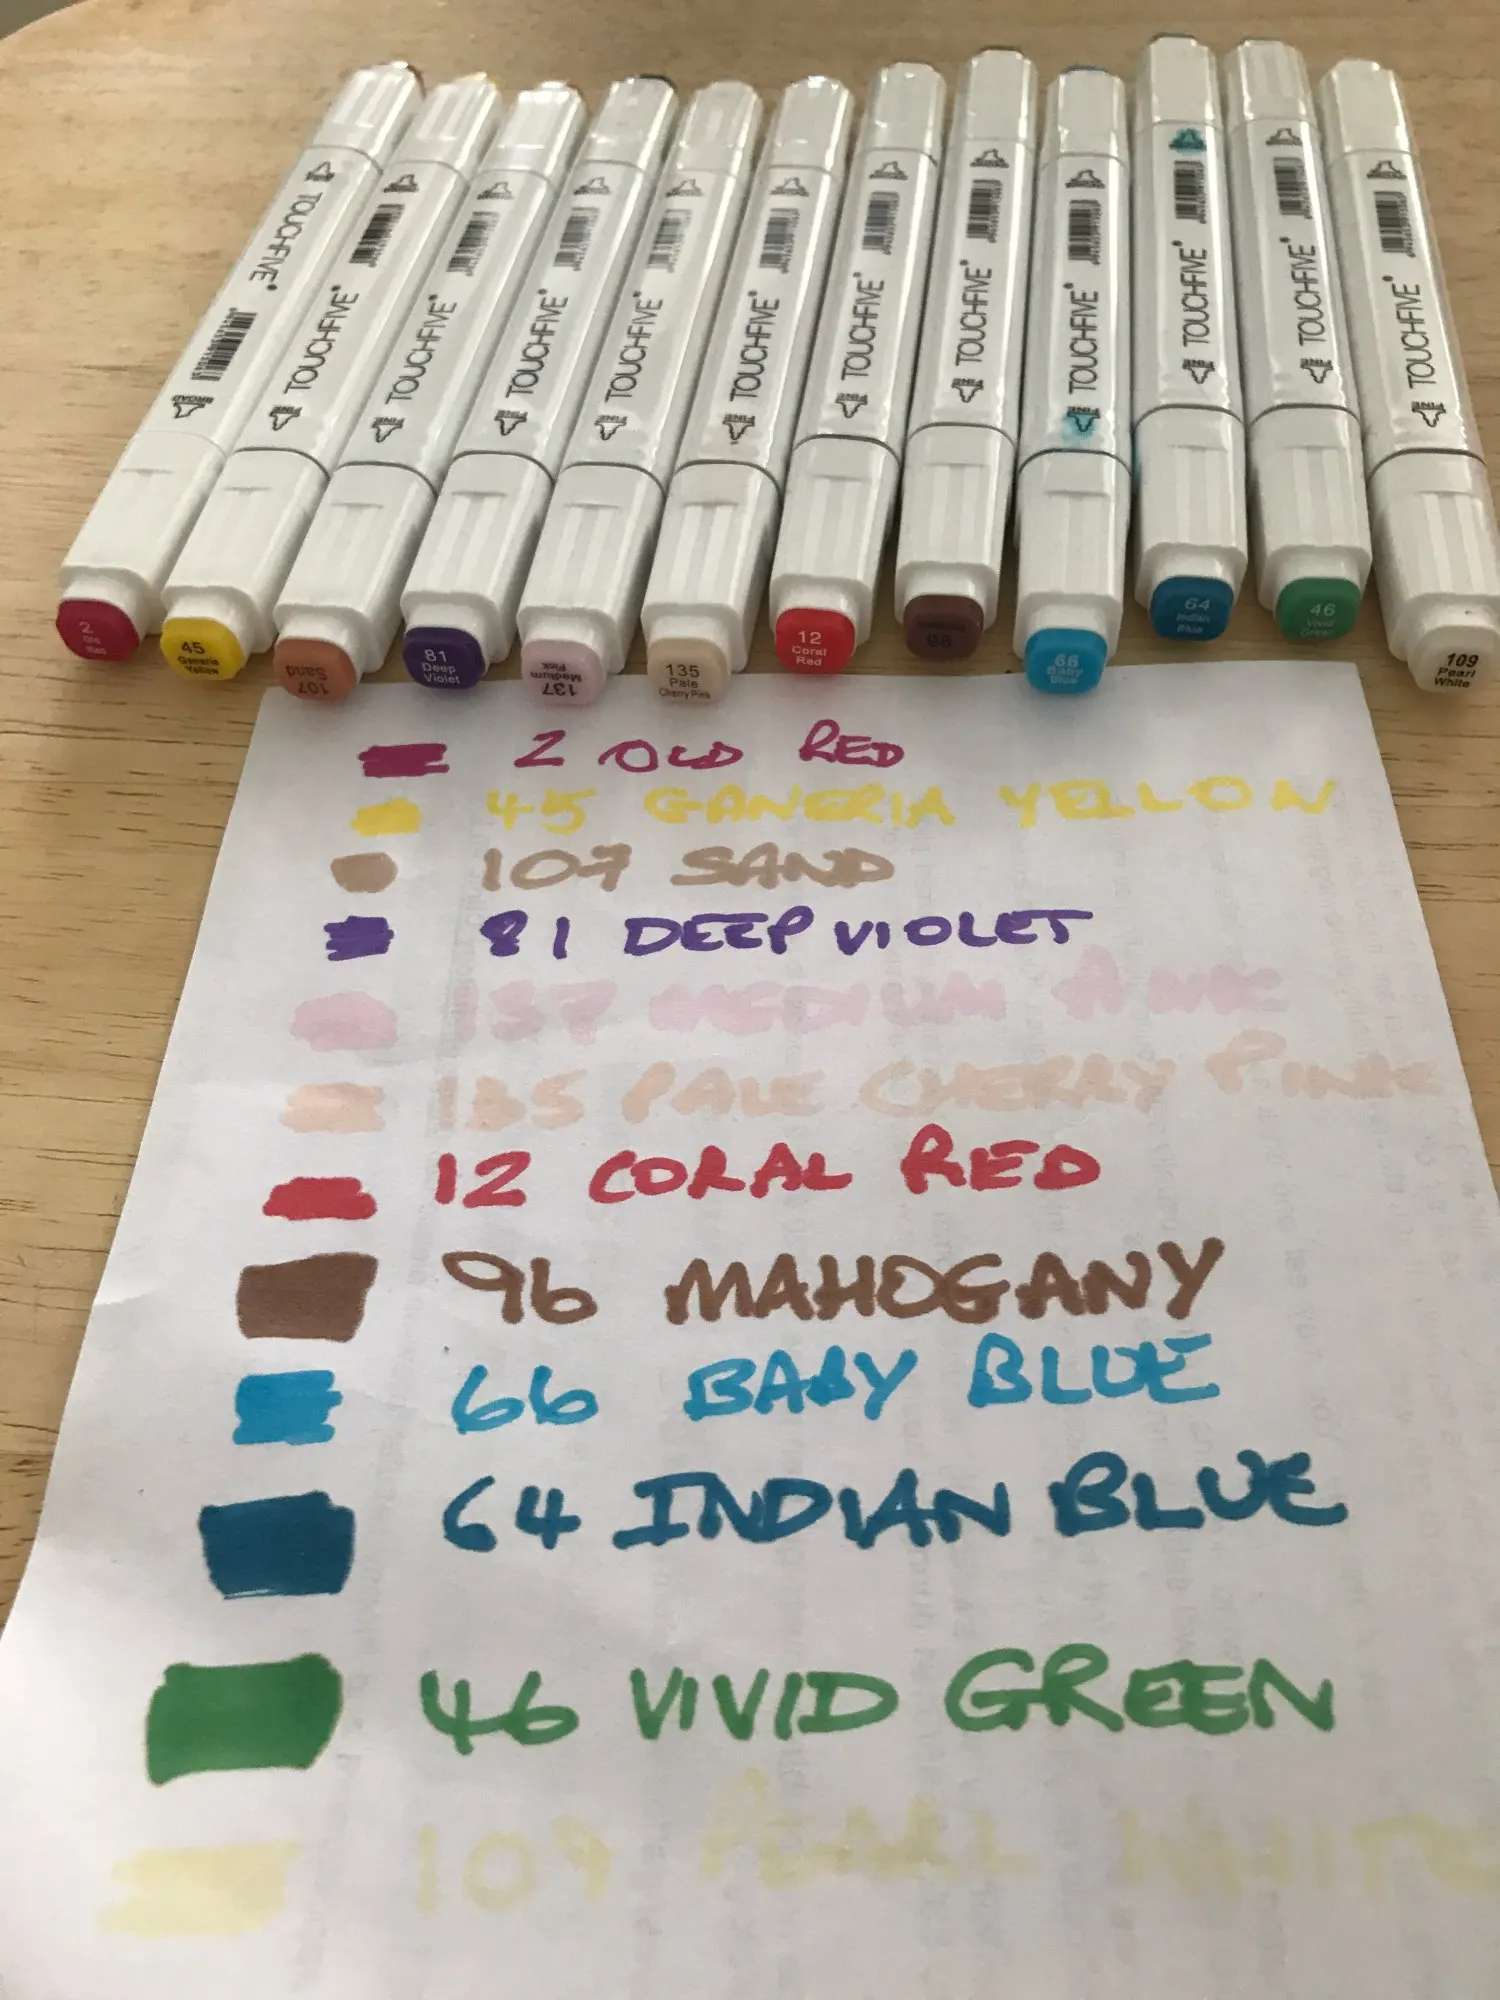 BROAD TOUCHFIVE BROAD
TOUCHFIVE FINE
TOUCHFIVE FINE
TOUCHFIVE FINE
TOUCHFIVE FINE
TOUCHFIVE FINE
TOUCHFIVE FINE
TOUCHFIVE FINE
TOUCHFIVE FINE
TOUCHFIVE FINE
TOUCHFIVE FINE
TOUCHFIVE FINE
2
Old
Red
45
Ganeria
Yellow
107
Sand
81
Deep
Violet
137
Medium
Pink
135
Pale
Cherry Pink
12
Coral
Red
96
66
Baby
Blue
64
Indian
Blue
46
Vivid
Green
109
Pearl
White
2 OLD RED
45 GANERIA YELLOW
107 SAND
81 DEEP VIOLET
137 MEDIUM PINK
135 PALE CHERRY PINK
12 CORAL RED
96 MAHOGANY
66 BABY BLUE
64 INDIAN BLUE
46 VIVID GREEN
109 PEARL WHITE